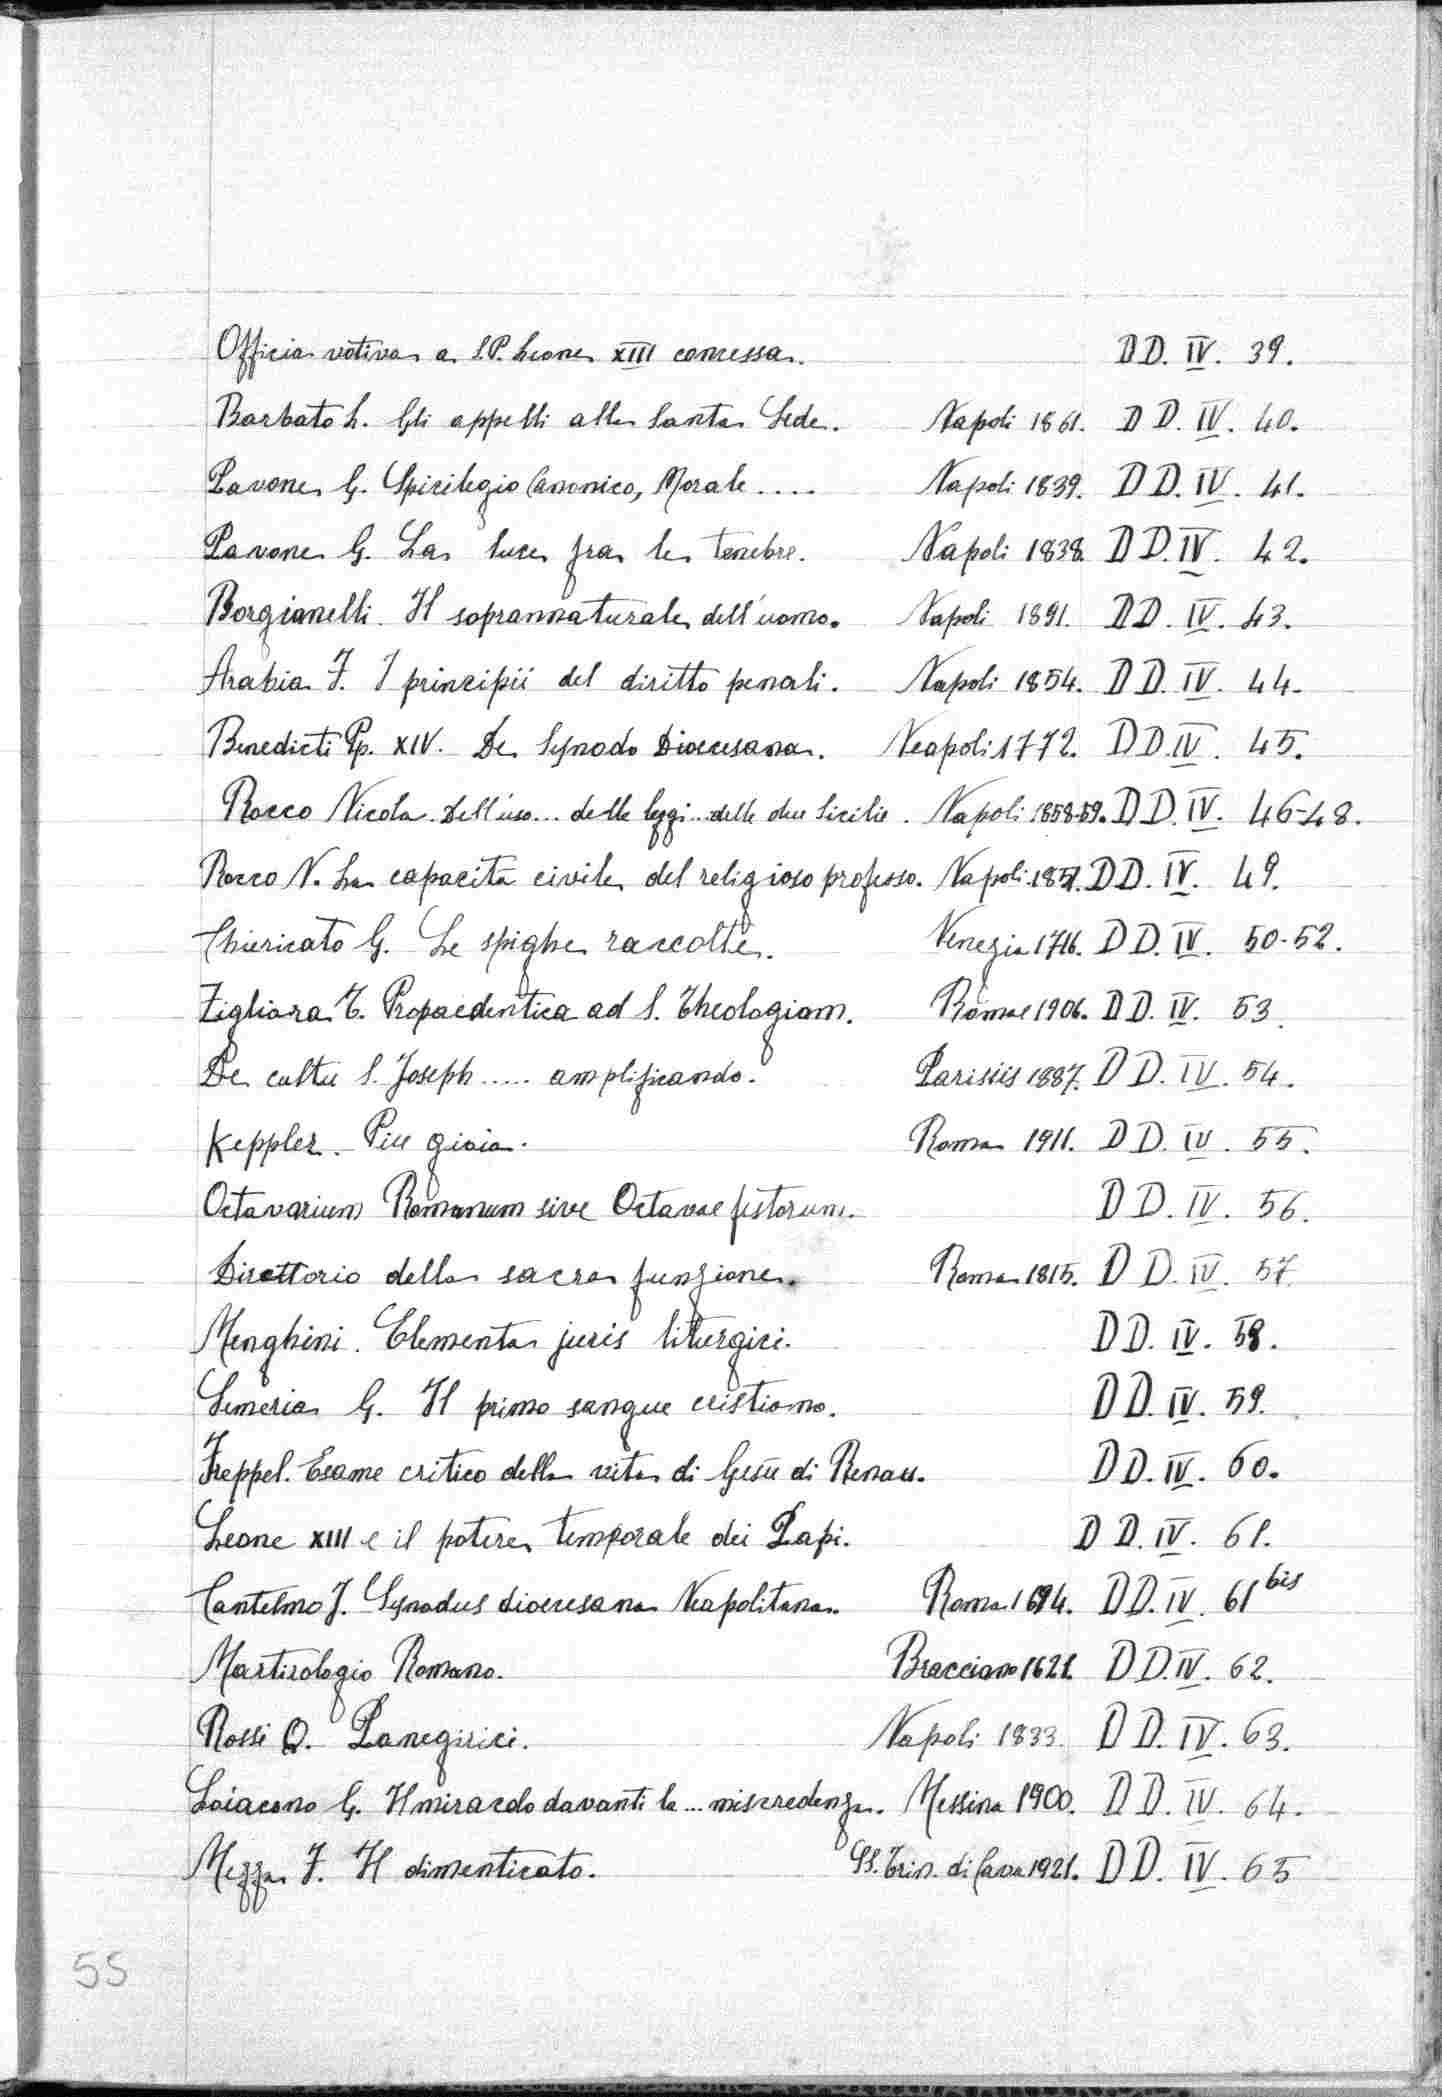 Officia votiva a S.P. Leone XIII concessa. DD. IV. 39.
Barbato L. Gli appelli alla Santa Sede. Napoli 1861. DD. IV. 40.
Pavone G. Spicilegio Canonico, Morale .... Napoli 1839. DD. IV. 41.
Pavone G. La luce fra le tenebre. Napoli 1838. DD. IV. 42.
Borgianelli. Il soprannaturale dell'uomo. Napoli 1891. DD. IV. 43.
Arabia F. I principii del diritto penali. Napoli 1854. DD. IV. 44.
Benedicti Pp. XIV. De Synodo Diocesana. Neapoli 1772. DD. IV. 45.
Rocco Nicola. Dell'uso... delle leggi... delle due Sicilie. Napoli 1858-59. DD. IV. 46-48.
Rocco N. La capacità civile del religioso professo. Napoli DD. IV. 49.
Chiericato G. Le spighe raccolte. Venezia 1716. DD. IV. 50-52.
Zigliara T. Propaedentica ad S. Theologiam. Romae 1906. DD. IV. 53.
De cultu S. Joseph ..... amplificando. Parisiis 1887. DD. IV. 54.
Keppler. Più gioia. Roma 1911. DD. IV. 55.
Octavarium Romanum sive Octavae festorum. DD. IV. 56.
Direttorio della sacra funzione. Roma 1815. DD. IV. 57.
Menghini. Elementa juris liturgici. DD. IV. 58.
Semeria G. Il primo sangue cristiano. DD. IV. 59.
Freppel. Esame critico della vita di Gesù di Renan. DD. IV. 60.
Leone XIII e il potere temporale dei Papi. DD. IV. 61.
Cantelmo J. Synodus diocesana Neapolitana. Roma 1694. DD. IV. 61 bis
Martirologio Romano. Bracciano 1621. DD. IV. 62.
Rossi Q. Panegirici. Napoli 1833. DD. IV. 63.
Loiacono G. Il miracolo davanti la ... miscredenza. Messina 1900. DD. IV. 64.
Mezza F. Il dimenticato. SS. Trin. di Cava 1921. DD. IV. 65
55